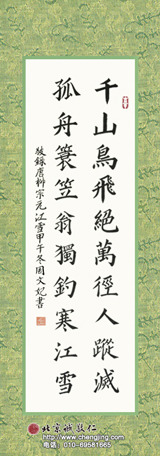 千山鳥飛絕萬徑人蹤滅
孤舟簑笠翁獨釣寒江雪
敬錄唐柳宗元江雪甲午冬周文妃書
北京诚敬仁
http://www.chengjing.com
电话:010-69581665